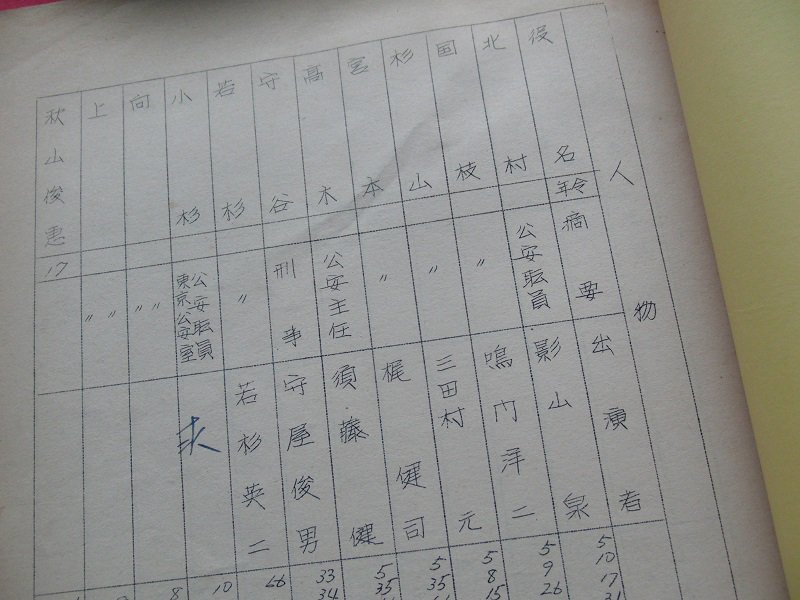 人物
役名
年令
摘要
出演者
北村
公安職員
影山泉
5
10
17
31
国枝
〃
鳴門洋二
5
9
26
杉山
〃
三田村元
5
8
15
宮本
〃
梶健司
5
35
高木
公安主任
須藤健
5
35
守谷
刑事
守屋俊男
33
34
若杉
〃
若杉英二
66
小杉
公安職員
東京公安室
未
10
向
〃〃
8
上
〃〃
秋山俊恵
17